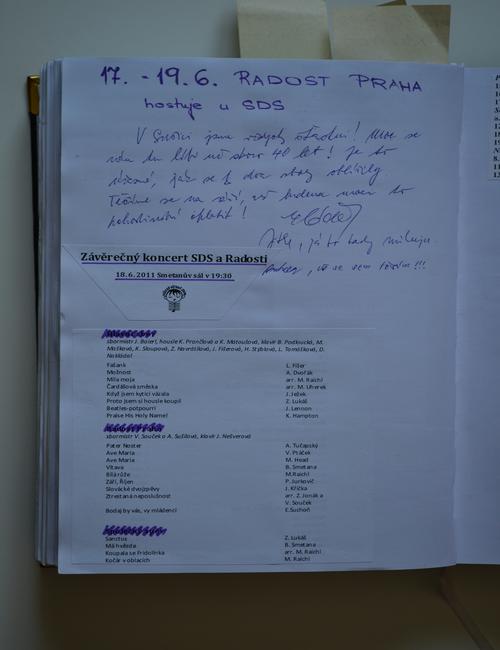 17. - 19.6. RADOST PRAHA
hostuje u SDS
V Sušici jsme vždycky šťastni! Moc se
nám tu líbí už skoro 40 let! Je to
úžasné, jak se ty dva sbory oblíbily
Těšíme se na září, až budeme moci to
pohostinství oplatit!
já to tady miluju
Závěrečný koncert SDS a Radosti
18.6.2011 Smetanův sál v 19:30
sbormistr J. Baierl, housle K. Prančlová a K. Matoušová, klavír B. Podloucká, M.
Mošková, K. Sloupová, Z. Navrátilová, J. Fišerová, H. Stýblová, L. Tomášková, D.
Nakládal
Fašank L. Fišer
Možnost A. Dvořák
Milá moja arr. M. Raichl
Čardášová směska arr. M. Uherek
Když jsem kytici vázala J. Ježek
Proto jsem si housle koupil Z. Lukáš
Beatles-potpourri J. Lennon
Praise His Holy Name! K. Hampton
sbormistr V. Souček a A. Sušilová, klavír J. Nešverová
Pater Noster A. Tučapský
Ave Maria V. Ptáček
Ave Maria M. Head
Vltava B. Smetana
Bílá růže M.Raichl
Září, Říjen P. Jurkovič
Slovácké dvojzpěvy J. Křička
Ztrestaná neposlušnost arr. Z. Jonák a
V. Souček
Bodaj by vás, vy mládenci E.Suchoň
Sanctus Z. Lukáš
Má hvězda B. Smetana
Koupala se Fridolínka arr. M. Raichl
Kočár v oblacích M. Raichl